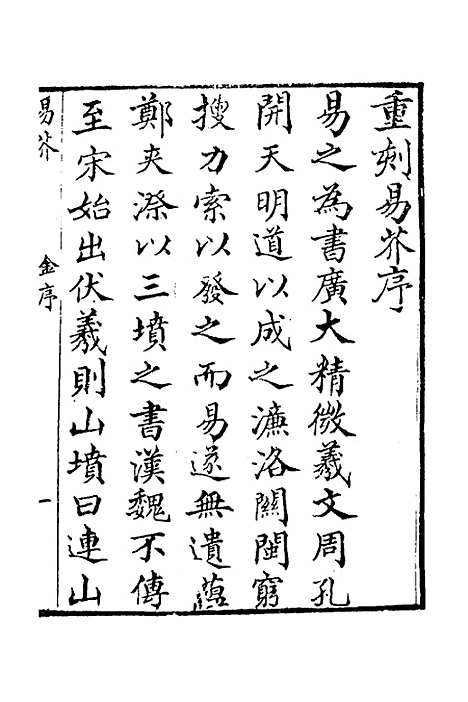 重刻易芥序
易之為書廣大精微羲文周孔
開天明道以成之濂洛關閩窮
搜力索以發之而易遂無遺蘊
鄭夾漈以三墳之書漢魏不傳
至宋始出伏羲則山墳曰連山
易芥 金序 一